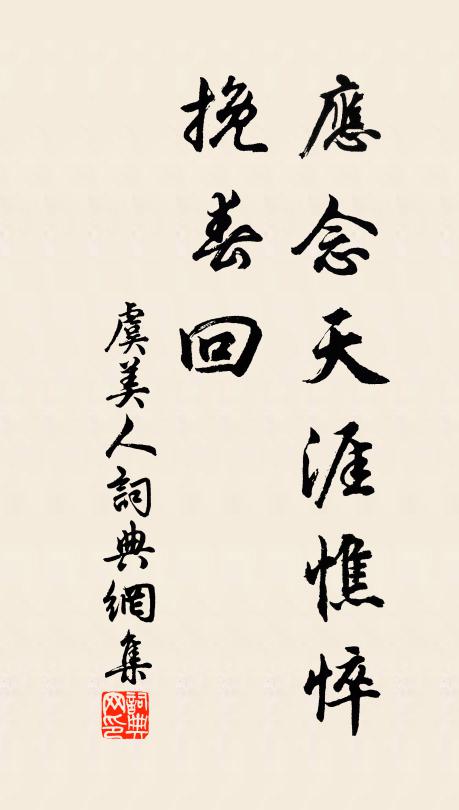 應念天涯憔悴
挽春回
虞美人詞典網集
詞典網印